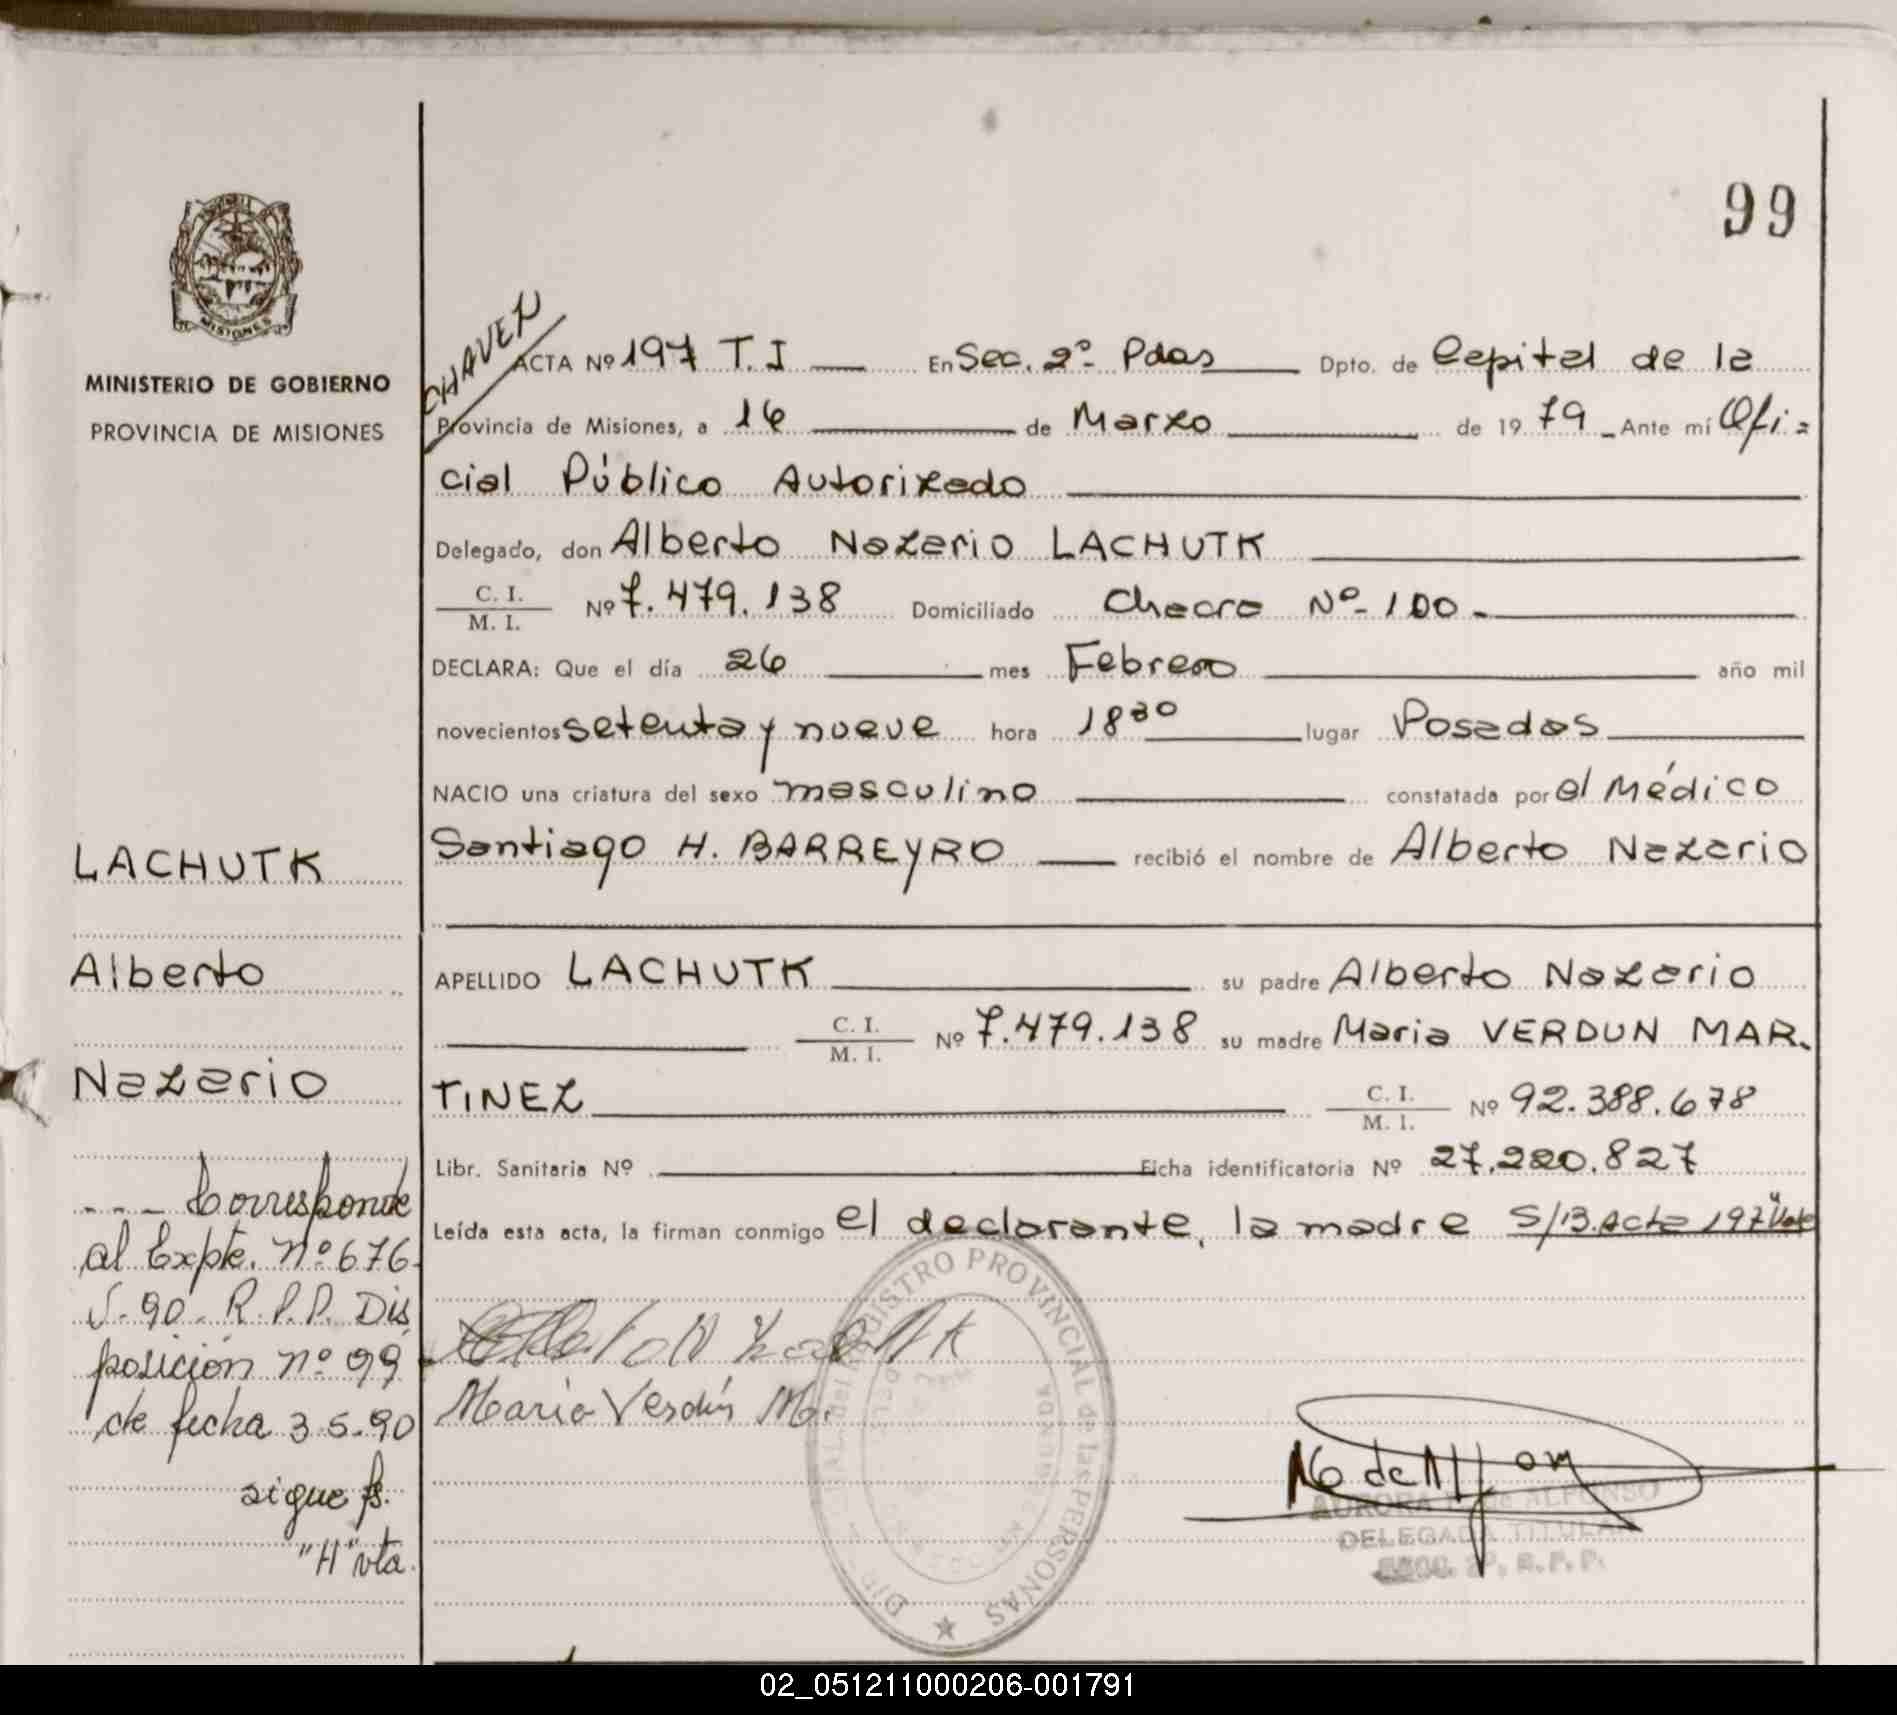 99
MISIONES
MINISTERIO DE GOBIERNO
PROVINCIA DE MISIONES
LACHUTK
Alberto
Nazario
- - - Corresponde
al Expte. Nº 676.
90. R.P.P. Dis
posición nº 99
de fecha 3.5.90
sigue fs.
"H" vta.
ACTA Nº 197 T.I En Sec. 2º Pdas Dpto. de Capital de la
Provincia de Misiones, a 16 de Marzo de 1979 Ante mí Ofi=
cial Público Autorizado
Delegado, don Alberto Nazario LACHUTK
C. I.
M. I. Nº 7.479.138 Domiciliado Chacra Nº 100.-
DECLARA: Que el día 26 mes Febrero año mil
novecientos setenta y nueve hora 18 30 lugar Posadas
NACIO una criatura del sexo masculino constatada por el Médico
Santiago H. BARREYRO recibió el nombre de Alberto Nazario
APELLIDO LACHUTK su padre Alberto Nazario
C. I.
M. I. Nº 7.479.138 su madre Maria VERDUN MAR-
TINEZ C. I.
M. I. Nº 92.388.678
Libr. Sanitaria Nº Ficha identificatoria Nº 27.220.827
Leída esta acta, la firman conmigo el declarante, la madre S/B. Acta 197
María Verdún M.
REGISTRO PROVINCIAL de las PERSONAS
AURORA de ALFONSO
DELEGADA TITULAR
SECC. 2º, R. P. P.
02_051211000206-001791